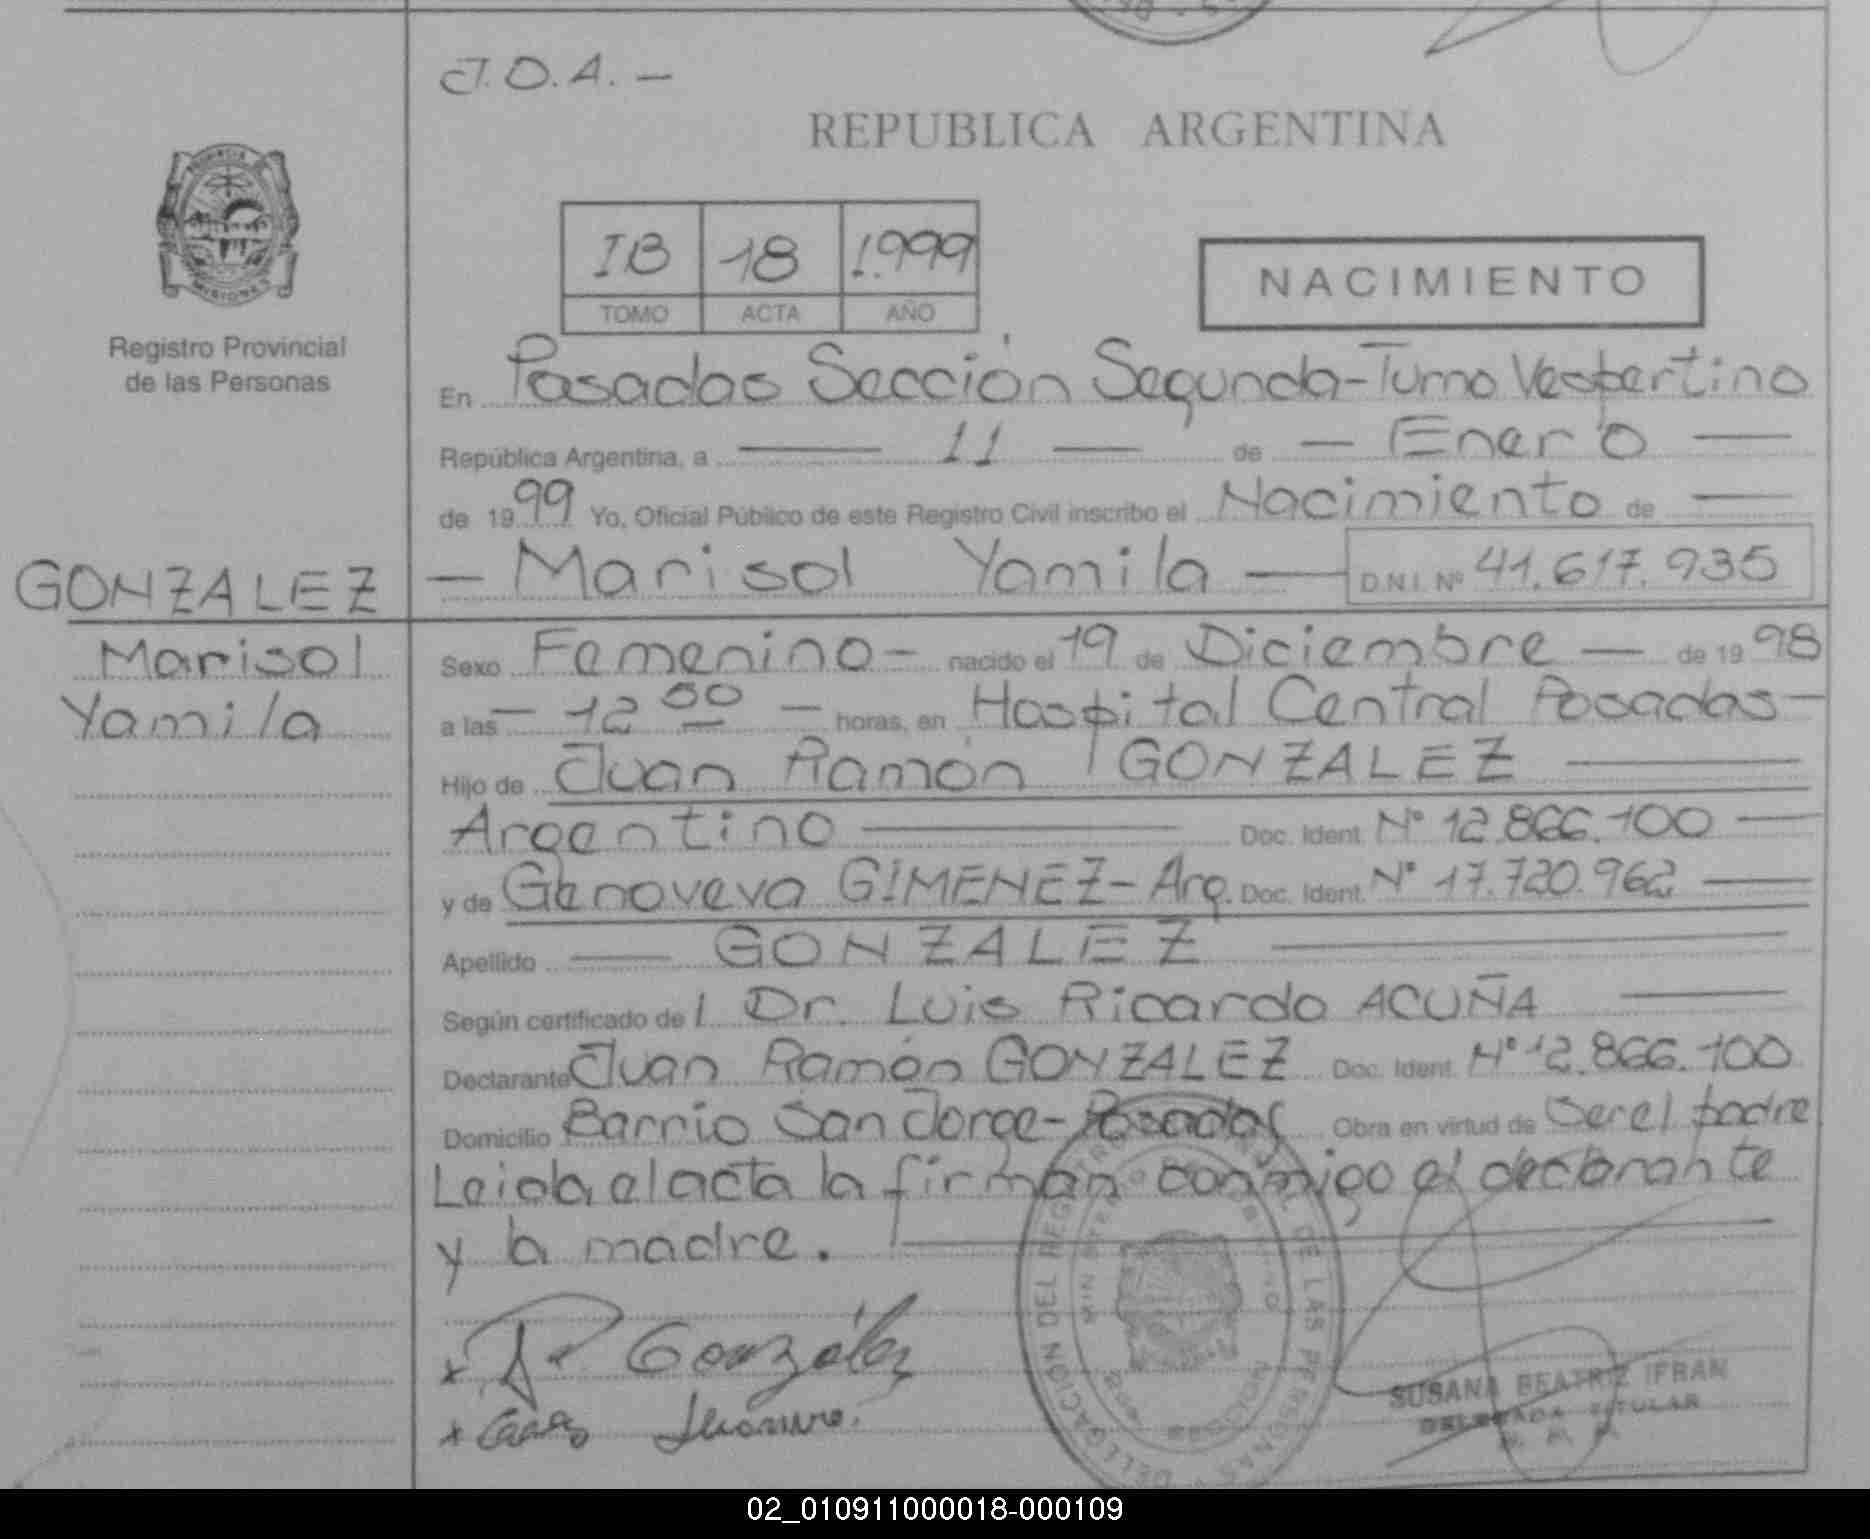 J.O.A. —
REPUBLICA ARGENTINA
PROVINCIA
MISIONES
Registro Provincial
de las Personas
IB 18 1.999
TOMO ACTA AÑO
NACIMIENTO
En Posadas Sección Segunda-Turno Vespertino
República Argentina, a — 11 — de — Enero —
de 1999 Yo, Oficial Público de este Registro Civil inscribo el Nacimiento de —
— Marisol Yamila — D.N.I. Nº 41.617.935
GONZALEZ
Marisol
Yamila
Sexo Femenino - nacido el 19 de Diciembre — de 1998
a las — 12 00 — horas, en Hospital Central Posadas —
Hijo de Juan Ramón GONZALEZ —
Argentino — Doc. Ident. Nº 12.866.100 —
y de Genoveva GIMENEZ - Arg. Doc. Ident. Nº 17.720.962 —
Apellido — GONZALEZ —
Según certificado del Dr. Luis Ricardo ACUÑA —
Declarante Juan Ramón GONZALEZ Doc. Ident. Nº 12.866.100
Domicilio Barrio San Jorge - Posadas Obra en virtud de Ser el padre
Leida el acta la firman conmigo el declarante
y la madre. —
x González
x
DELEGACIÓN DEL REGISTRO DE LAS PERSONAS
SUSANA BEATRIZ IFRAN
DELEGADA TITULAR
02_010911000018-000109